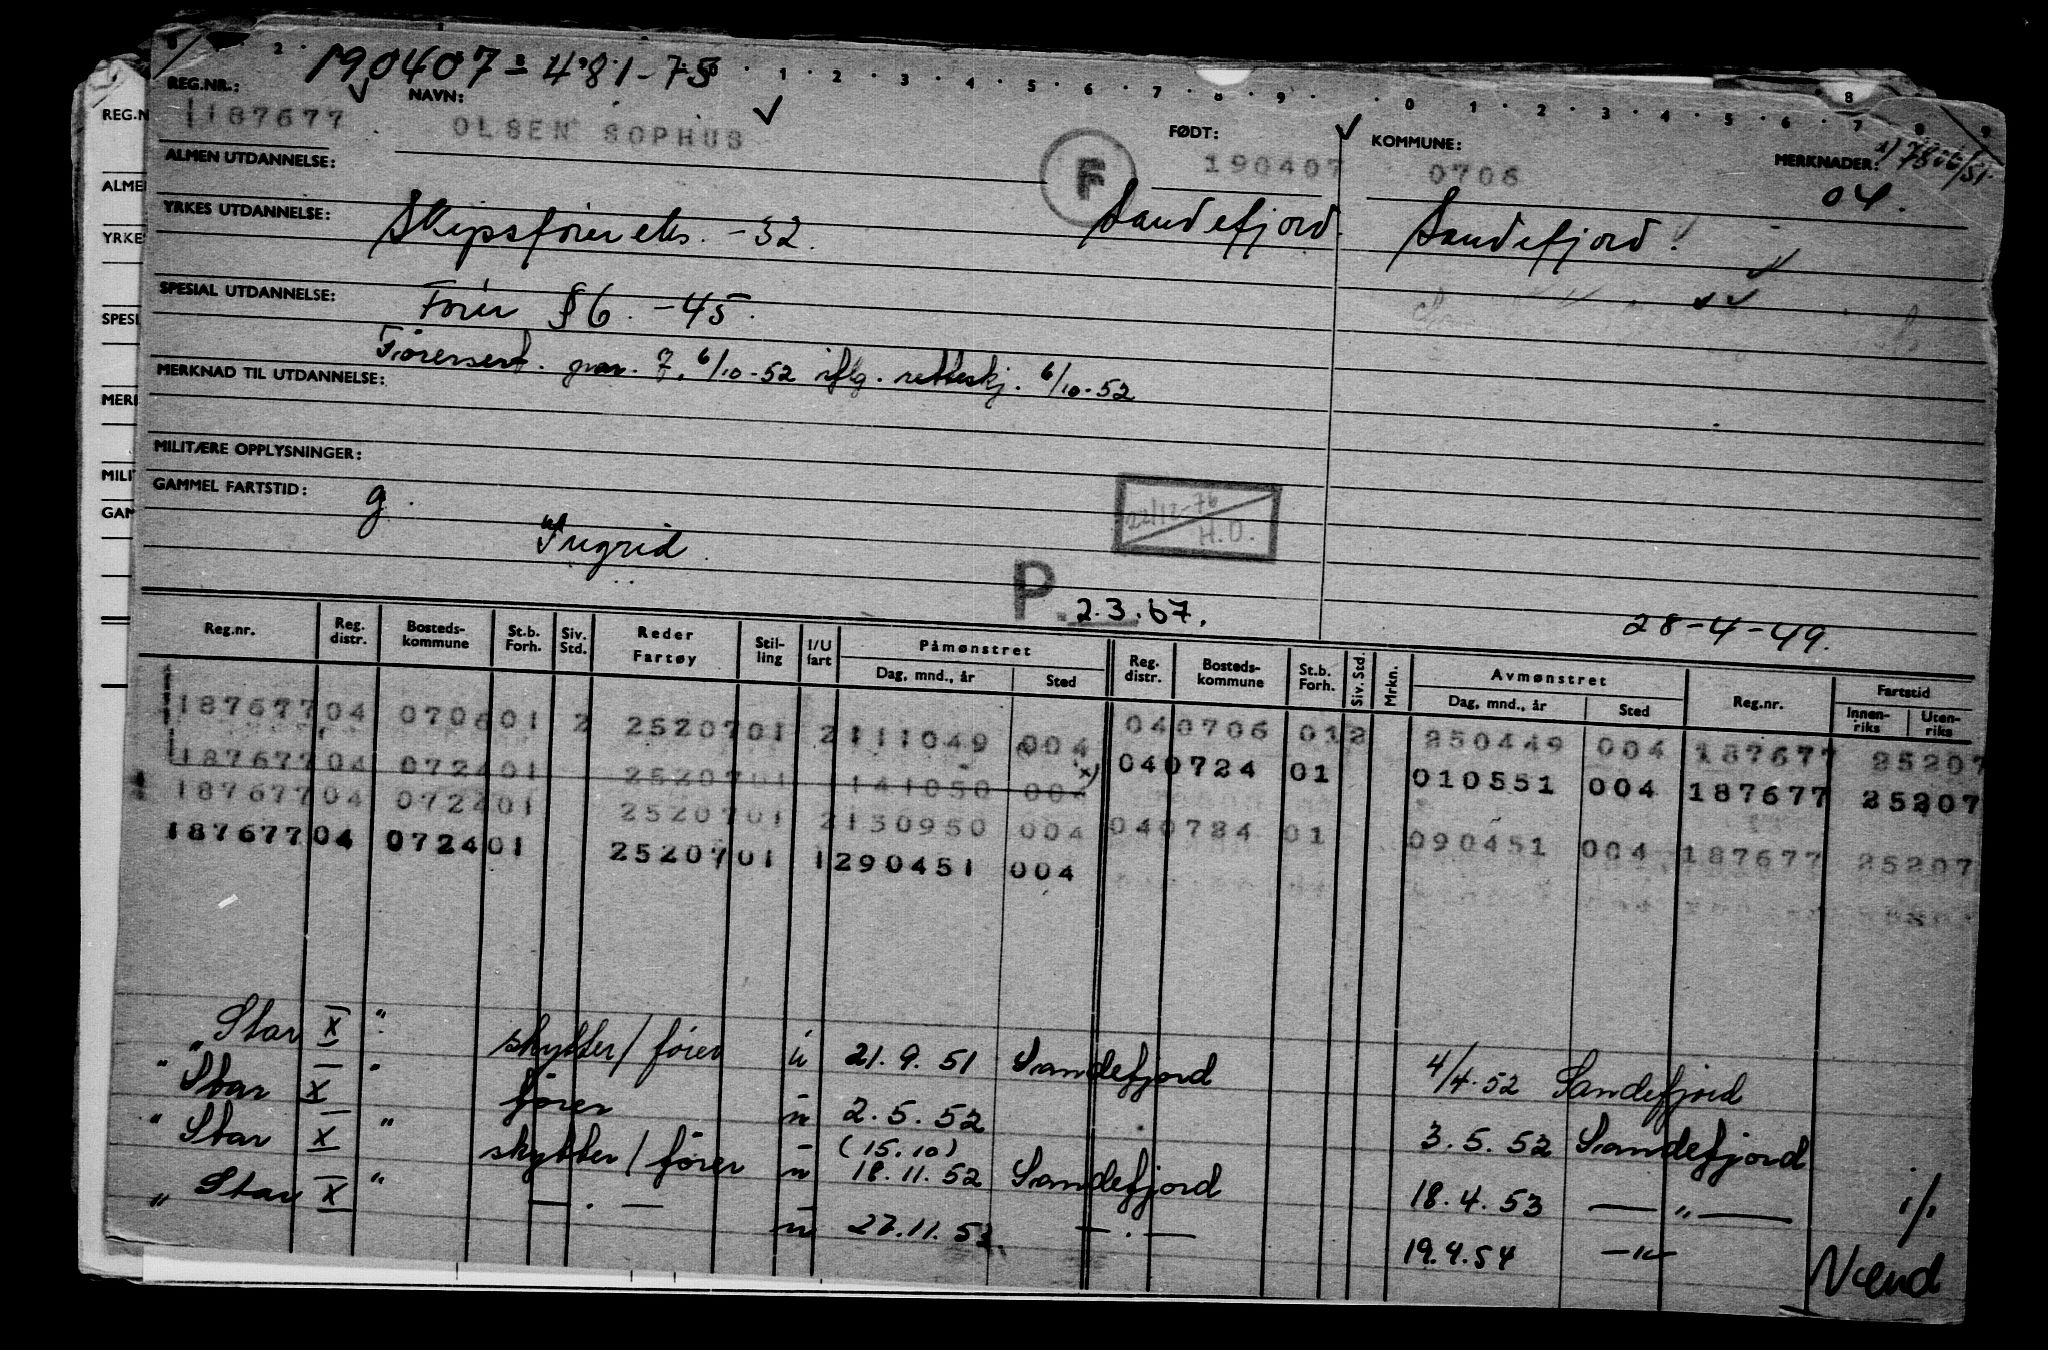 190407 - 481-75
REG.NR.: NAVN: FØDT: KOMMUNE: MERKNADER: 1) 7806/51.
187677 OLSEN SOPHUS F 190407 0706 04.
ALMEN UTDANNELSE:
YRKES UTDANNELSE: Skipsfører eks. -32. Sandefjord. Sandefjord.
SPESIAL UTDANNELSE: Fører §6. -45.
Førersert. 7, 6/10-52 iflg. 6/10-52
MERKNAD TIL UTDANNELSE:
MILITÆRE OPPLYSNINGER:
GAMMEL FARTSTID: g.
22/12-76 H.O.
Ingrid
P. 2.3.67.
28-4-49.
Reg.nr. Reg. distr. Bosteds-kommune St.b. Forh. Siv. Std. Reder Fartøy Stil-ling I/U fart Påmønstret Dag, mnd., år Sted Reg. distr. Bosteds-kommune St.b. Forh. Siv. Std. Mrkn. Avmønstret Dag, mnd., år Sted Reg.nr. Fartstid Innen-riks Uten-riks
187677 04 0706 01 2 25207 01 2 111049 004 04 0706 01 2 250449 004 187677 25207
187677 04 0724 01 25207 01 141050 004 x) 04 0724 01 010551 004 187677 25207
187677 04 0724 01 25207 01 2 130950 004 04 0724 01 090451 004 187677 25207
187677 04 0724 01 25207 01 1 290451 004
"Star X" skytter/fører u 21.9.51 Sandefjord 4/4.52 Sandefjord
"Star X" fører u 2.5.52 3.5.52 Sandefjord
(15.10)
"Star X" skytter/fører u 18.11.52 Sandefjord 18.4.53 — " —
"Star X" — . — u 27.11.53 — . — 19.4.54 — " —
Vend